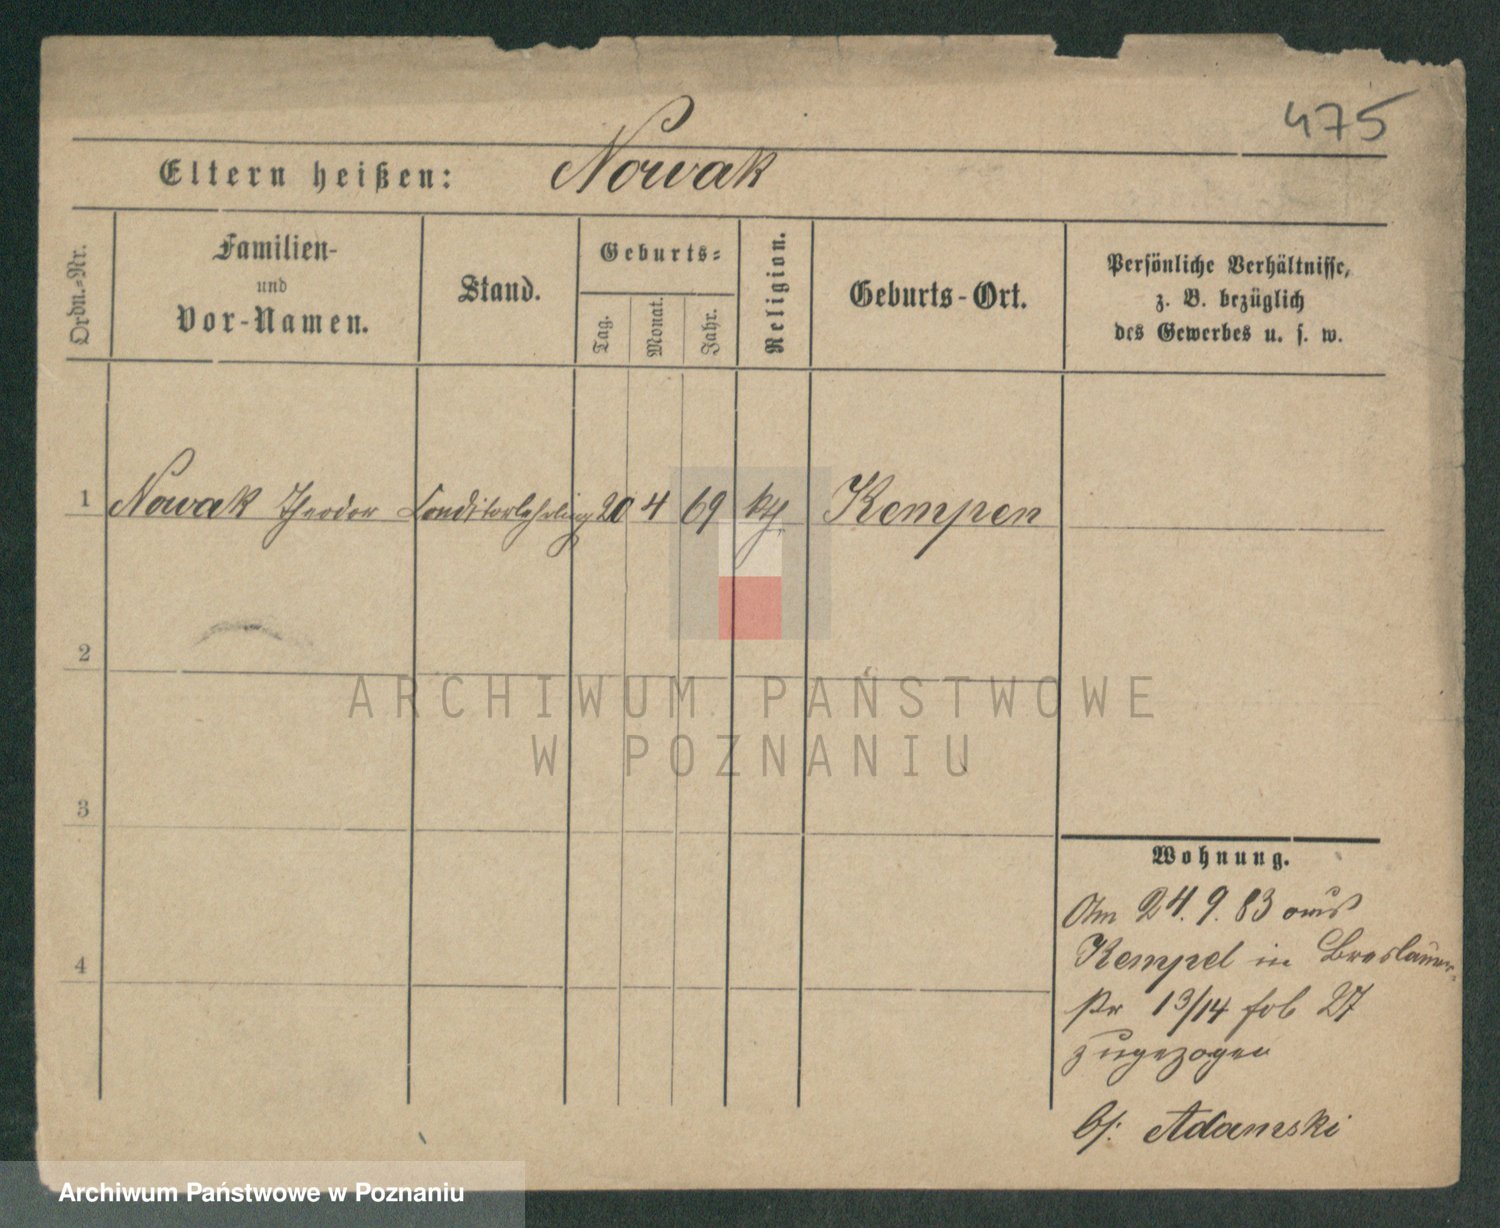 475
Eltern heißen: Nowak
Ordn.=Nr.
Familien-
und
Vor-Namen.
Stand.
Geburts=
Tag.
Monat.
Jahr.
Religion.
Geburts-Ort.
Persönliche Verhältnisse,
z. B. bezüglich
des Gewerbes u. s. w.
1 Nowak Theodor Conditorlehrling 20 4 69 kth. Kempen
2
3
4
ARCHIWUM PAŃSTWOWE
W POZNANIU
Wohnung.
Am 24. 9. 83 aus
in Breslauer-
str 13/14
zugezogen
b/: Adamski
Archiwum Państwowe w Poznaniu